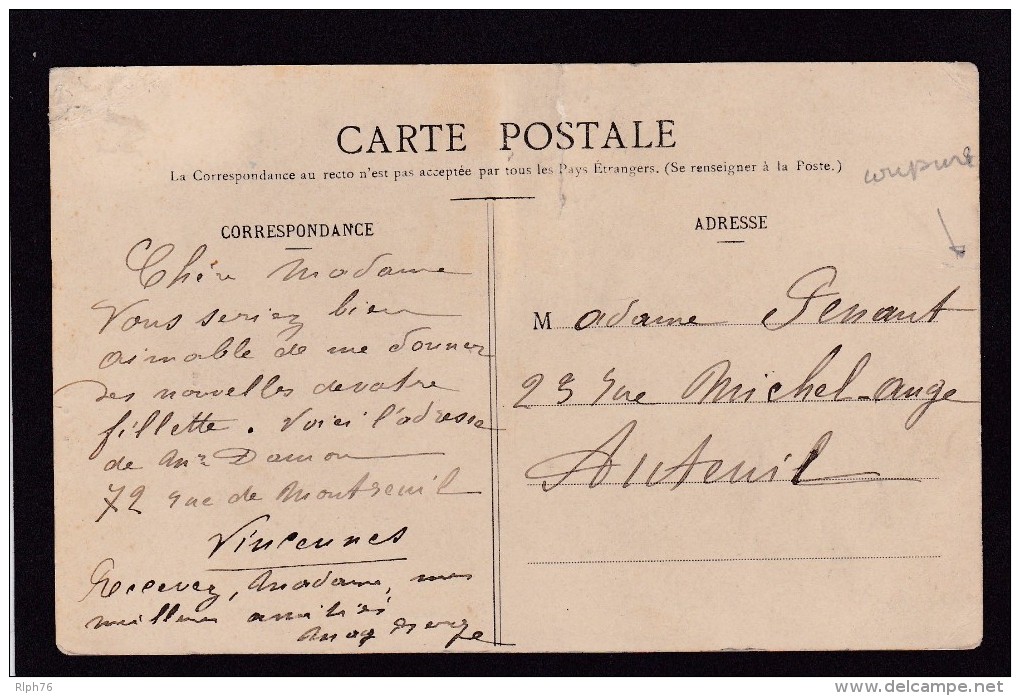 CARTE POSTALE
La Correspondance au recto n'est pas acceptée par tous les Pays Étrangers. (Se renseigner à la Poste.)
coupure
CORRESPONDANCE
Chère Madame
Vous seriez bien
aimable de me donner
des nouvelles de votre
fillette. Voici l'adresse
de Mr Damon
72 rue de Montreuil
Vincennes
Recevez, Madame, mes
meilleures amitiés
ADRESSE
Madame Penant
23 rue Michel-ange
Auteuil
Rlph76
delcampe.net